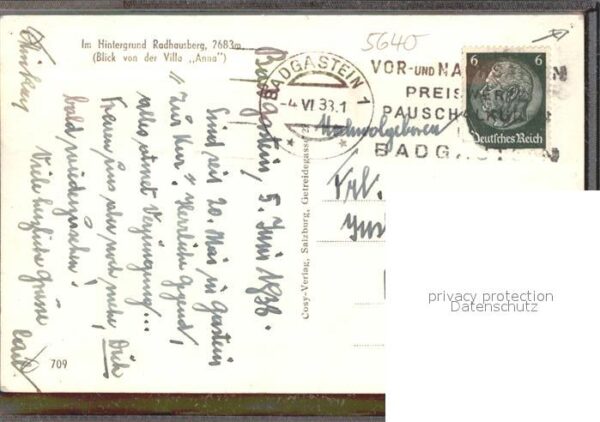 5640
Im Hintergrund Radhausberg, 2683m
(Blick von der Villa „Anna“)
BADGASTEIN 1
-4 VI 38.1
VOR- UND NA
PREIS
PAUSCHALKUR
BADGAST
6 6
Deutsches Reich
Badgastein, 5. Juni 1938.
Sind seit 20. Mai in Gastein
"zur Kur". Herrliche Gegend,
alles atmet Verjüngung...
Freuen uns aber noch mehr, Dich
bald wiederzusehen!
Viele herzliche Grüsse
Hochwolgeboren
Frl.
Cosy-Verlag, Salzburg, Getreidegasse 22
709
privacy protection
Datenschutz